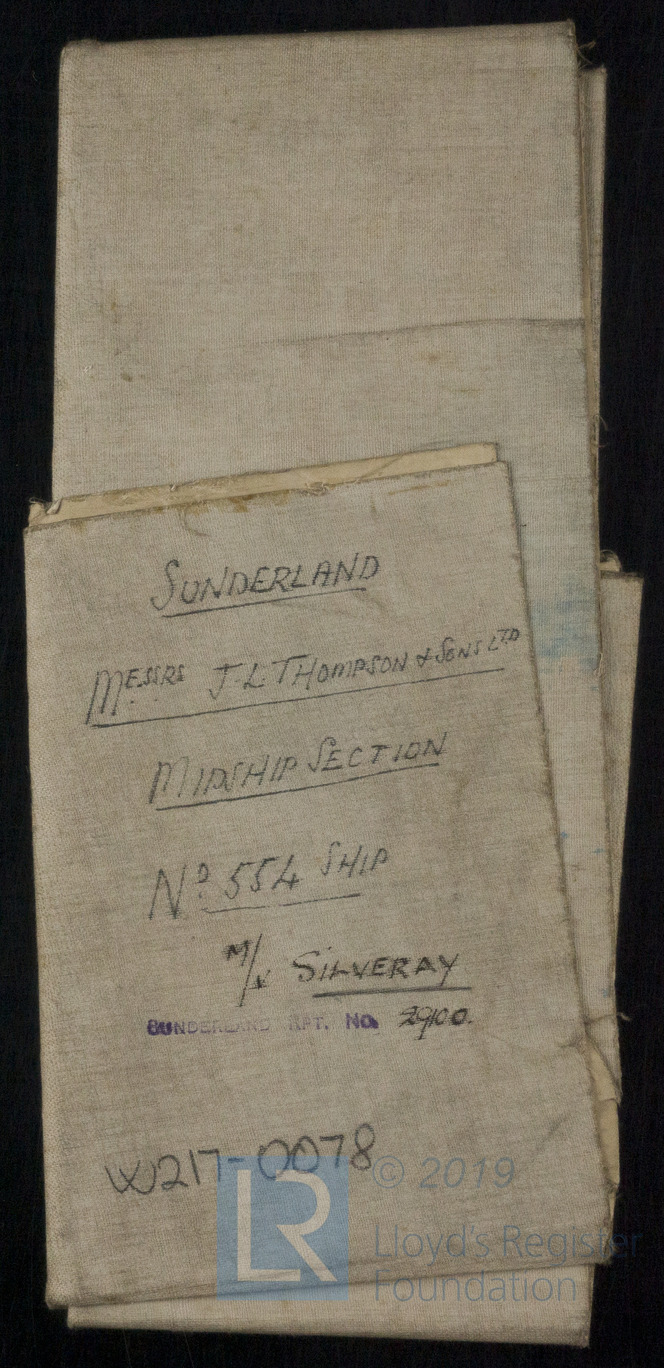 SUNDERLAND
MESSRS J. L. THOMPSON & SONS LTD
MIDSHIP SECTION
No 554 SHIP
M/V SILVERAY
SUNDERLAND RPT. No.
W217-0078
LR © 2019
Lloyd's Register
Foundation